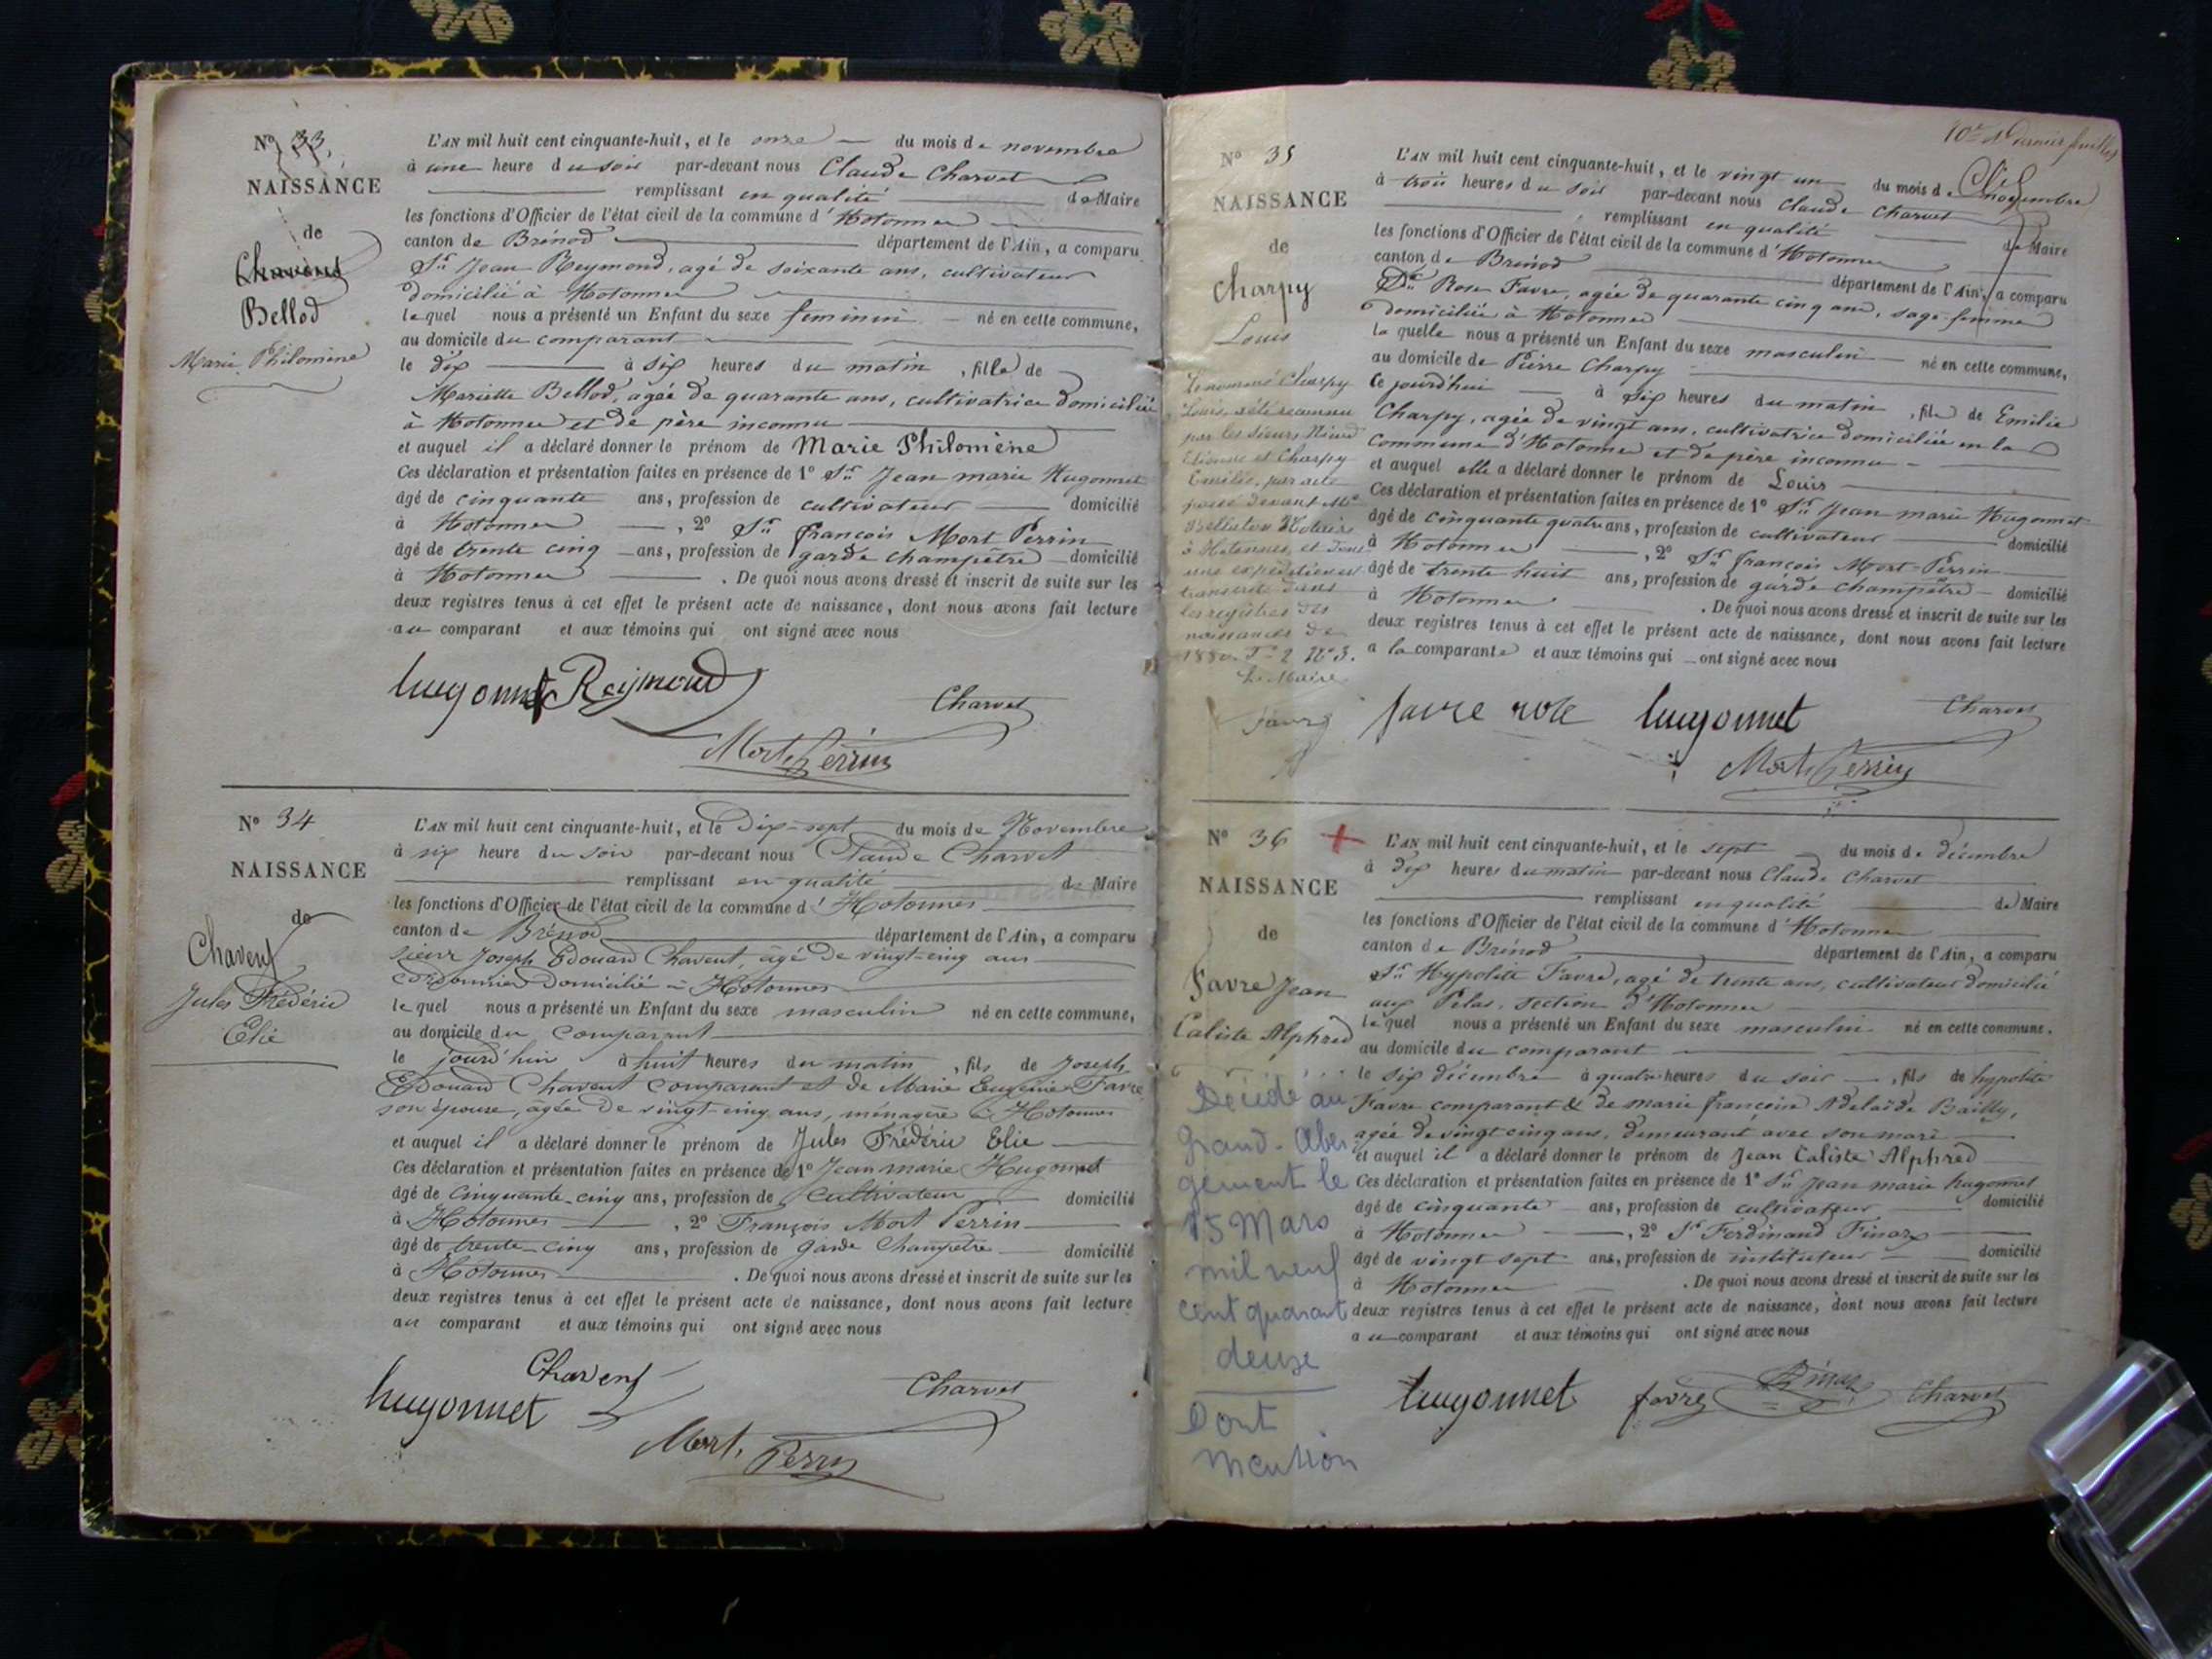 Nº 33.
NAISSANCE
de
Chavent
Bellod
Marie Philomène
L'AN mil huit cent cinquante-huit, et le onze du mois de novembre
à une heure du soir par-devant nous Claude Charvet
remplissant en qualité de Maire
les fonctions d'Officier de l'état civil de la commune d'Hotonnes
canton de Brénod département de l'Ain, a comparu
Sr Jean Reymond, agé de soixante ans, cultivateur
domicilié à Hotonnes
lequel nous a présenté un Enfant du sexe feminin né en cette commune,
au domicile du comparant
le dix à six heures du matin, fille de
Mariette Bellod, agée de quarante ans, cultivatrice domiciliée
à Hotonnes et de père inconnu
et auquel il a déclaré donner le prénom de Marie Philomène
Ces déclaration et présentation faites en présence de 1º Sr Jean marie Hugonnet
âgé de cinquante ans, profession de cultivateur domicilié
à Hotonnes, 2º Sr françois Mort Perrin
âgé de trente cinq ans, profession de garde champêtre domicilié
à Hotonnes. De quoi nous avons dressé et inscrit de suite sur les
deux registres tenus à cet effet le présent acte de naissance, dont nous avons fait lecture
au comparant et aux témoins qui ont signé avec nous
hugonnet Reymond Charvet
Mort Perrin
Nº 34
NAISSANCE
de
Chavent
Jules Frédéric
Elie
L'AN mil huit cent cinquante-huit, et le Dix-sept du mois de Novembre
à six heure du soir par-devant nous Claude Charvet
remplissant en qualité de Maire
les fonctions d'Officier de l'état civil de la commune d'Hotonnes
canton de Brénod département de l'Ain, a comparu
sieur Joseph Edouard Chavent, âgé de vingt-cinq ans
cordonnier domicilié à Hotonnes
lequel nous a présenté un Enfant du sexe masculin né en cette commune,
au domicile du comparant
le jourd'hui à huit heures du matin, fils de Joseph
Edouard Chavent comparant et de Marie Eugénie Favre
son épouse, âgée de vingt cinq ans, ménagère à Hotonnes
et auquel il a déclaré donner le prénom de Jules Frédéric Elie
Ces déclaration et présentation faites en présence de 1º Jean marie Hugonnet
âgé de Cinquante-cinq ans, profession de Cultivateur domicilié
à Hotonnes, 2º François Mort Perrin
âgé de trente-cinq ans, profession de Garde Champêtre domicilié
à Hotonnes. De quoi nous avons dressé et inscrit de suite sur les
deux registres tenus à cet effet le présent acte de naissance, dont nous avons fait lecture
au comparant et aux témoins qui ont signé avec nous
Chavent Charvet
hugonnet
Mort Perrin
Nº 35
NAISSANCE
de
Charpy
Louis
Le nommé Charpy
Louis, a été reconnu
par les sieurs
et Charpy
Emilie, par acte
passé devant Me
Notaire
à Hotonnes, et dont
une expédition est
transcrite dans
les registres des
naissances de
Nº 3.
Le Maire
favre
L'AN mil huit cent cinquante-huit, et le vingt un du mois de novembre
à trois heures du soir par-devant nous Claude Charvet
remplissant en qualité de Maire
les fonctions d'Officier de l'état civil de la commune d'Hotonnes
canton de Brénod département de l'Ain, a comparu
Rose Favre, agée de quarante cinq ans, sage-femme
domiciliée à Hotonnes
laquelle nous a présenté un Enfant du sexe masculin né en cette commune,
au domicile de Pierre Charpy
Ce jourd'hui à six heures du matin, fils de Emilie
Charpy, agée de vingt ans, cultivatrice domiciliée en la
commune d'Hotonnes et de père inconnu
et auquel elle a déclaré donner le prénom de Louis
Ces déclaration et présentation faites en présence de 1º Sr Jean marie Hugonnet
âgé de cinquante quatre ans, profession de cultivateur domicilié
à Hotonnes, 2º Sr françois Mort-Perrin
âgé de trente huit ans, profession de garde champêtre domicilié
à Hotonnes. De quoi nous avons dressé et inscrit de suite sur les
deux registres tenus à cet effet le présent acte de naissance, dont nous avons fait lecture
a la comparante et aux témoins qui ont signé avec nous
favre rose hugonnet Charvet
Mort Perrin
Nº 36
NAISSANCE
de
Favre Jean
Caliste Alphred
Décédé au
Grand-Aber
gement le
15 Mars
mil neuf
cent quarante
deux
Dont
mention
L'AN mil huit cent cinquante-huit, et le sept du mois de décembre
à dix heures du matin par-devant nous Claude Charvet
remplissant en qualité de Maire
les fonctions d'Officier de l'état civil de la commune d'Hotonnes
canton de Brénod département de l'Ain, a comparu
Sr Hypolite Favre, agé de trente ans, cultivateur domicilié
aux Pelas, section d'Hotonnes
lequel nous a présenté un Enfant du sexe masculin né en cette commune.
au domicile du comparant
le six décembre à quatre heures du soir, fils de hypolite
Favre comparant & de marie françoise Adelaïde Bailly,
agée de vingt cinq ans, demeurant avec son mari
et auquel il a déclaré donner le prénom de Jean Caliste Alphred
Ces déclaration et présentation faites en présence de 1º Sr Jean marie hugonnet
âgé de cinquante ans, profession de cultivateur domicilié
à Hotonnes, 2º Sr Ferdinand Finaz
âgé de vingt sept ans, profession de instituteur domicilié
à Hotonnes. De quoi nous avons dressé et inscrit de suite sur les
deux registres tenus à cet effet le présent acte de naissance, dont nous avons fait lecture
au comparant et aux témoins qui ont signé avec nous
hugonnet favre Finaz Charvet